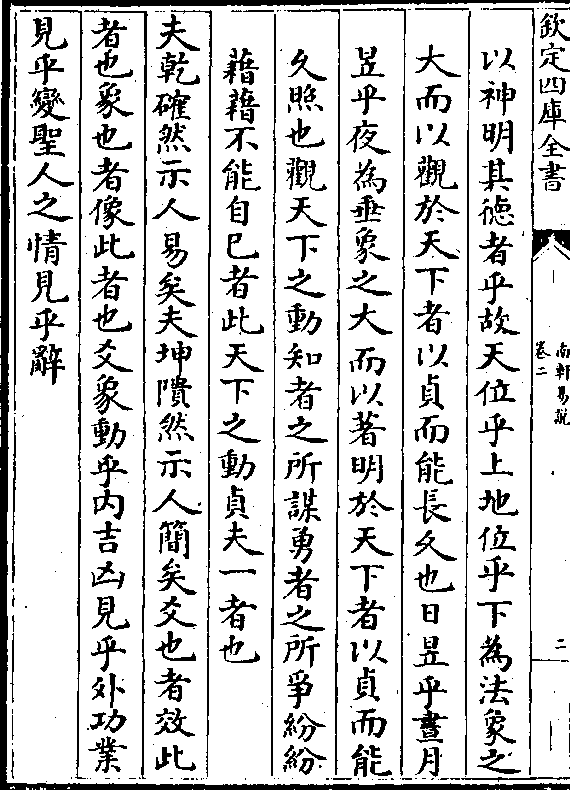 欽定四庫全書
南軒易說
卷二
二
以神明其徳者乎故天位乎上地位乎下為法象之
大而以觀於天下者以貞而能長久也日昱乎晝月
昱乎夜為垂象之大而以著明於天下者以貞而能
久照也觀天下之動知者之所謀勇者之所爭紛紛
藉藉不能自已者此天下之動貞夫一者也
夫乾確然示人易矣夫坤隤然示人簡矣爻也者效此
者也象也者像此者也爻象動乎内吉凶見乎外功業
見乎變聖人之情見乎辭